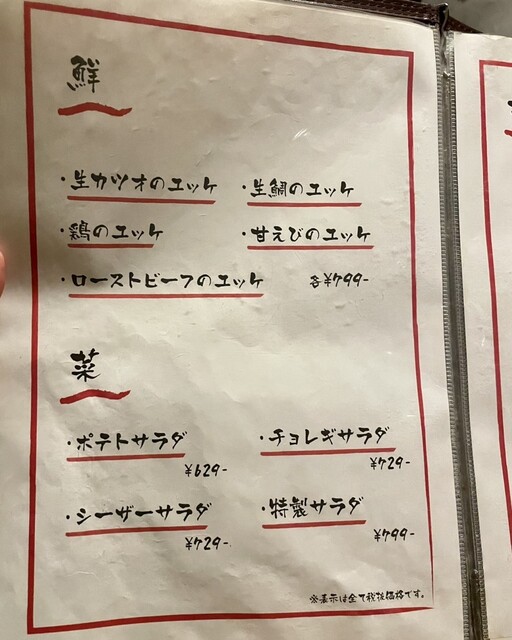 鮮
・生カツオのユッケ ・生鯛のユッケ
・鶏のユッケ ・甘えびのユッケ
・ローストビーフのユッケ 各¥799-
菜
・ポテトサラダ ・チョレギサラダ
¥629- ¥729-
・シーザーサラダ ・特製サラダ
¥729- ¥799-
※表示は全て税抜価格です。